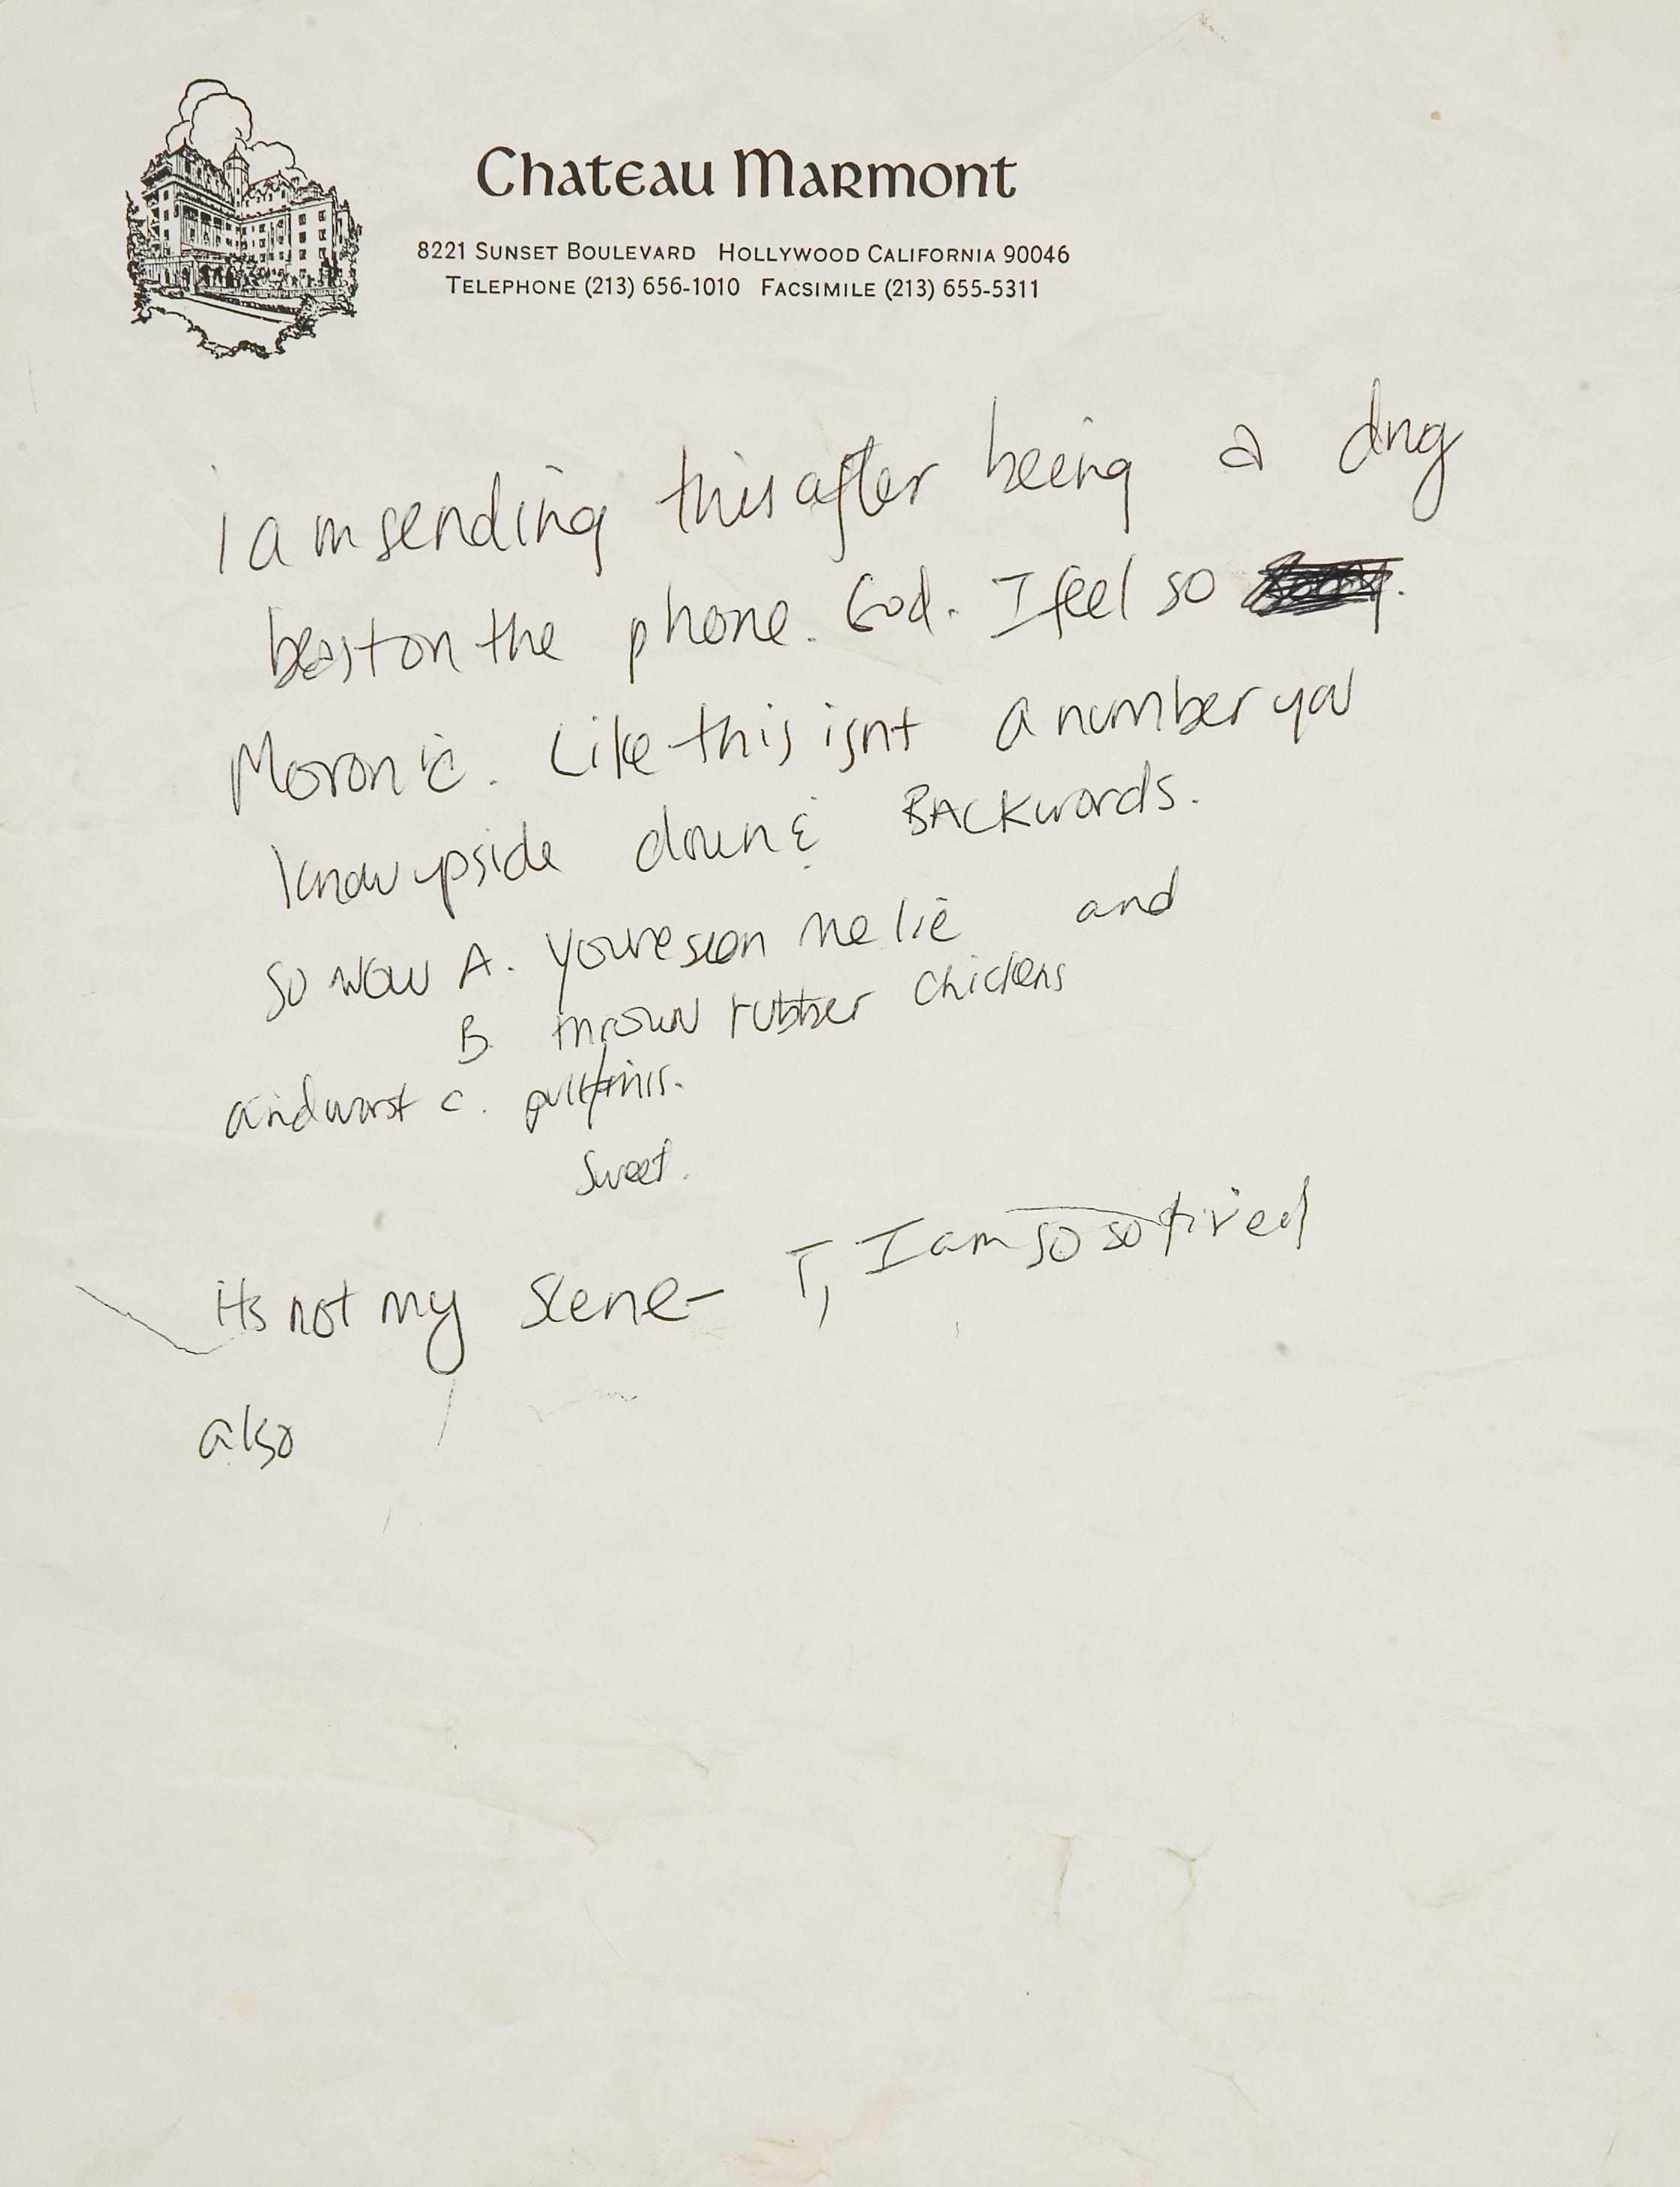 Chateau Marmont
8221 Sunset Boulevard Hollywood California 90046
Telephone (213) 656-1010 Facsimile (213) 655-5311
i am sending this after being a
beast on the phone. God. I feel so
Moronic. Like this isnt a number you
know upside down & BACKwards.
so now A. youve seen me lie and
B. thrown rubber chickens
and worst c. pull this.
sweet.
its not my scene- T, I am so so tired
also